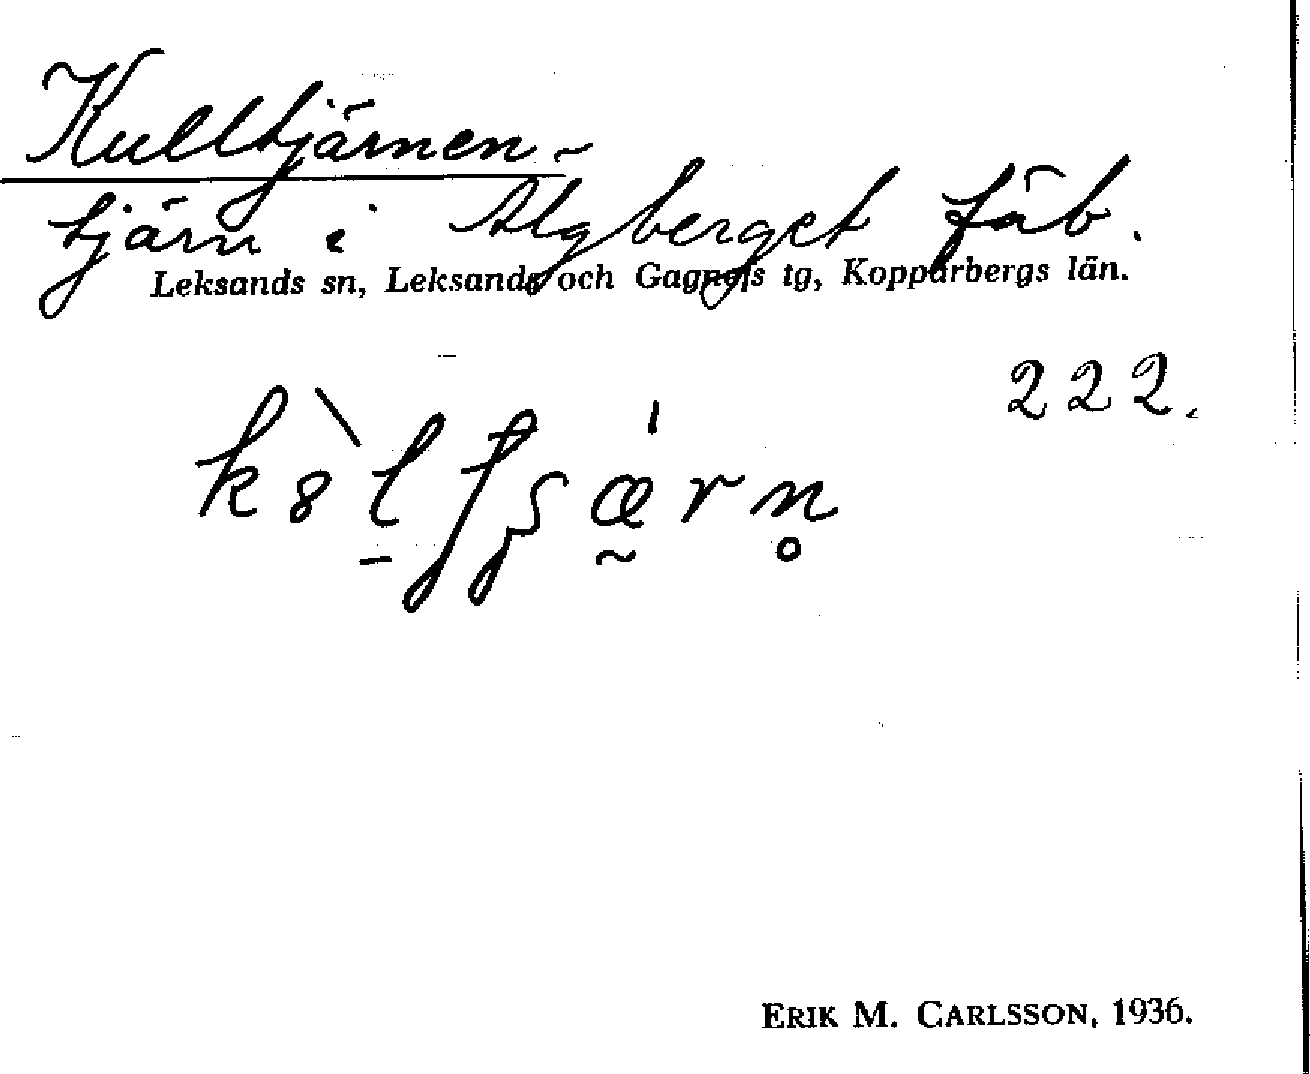 Kulltjärnen –
tjärn i Algberget fäb.
Leksands sn, Leksands och Gagnefs tg, Kopparbergs län.
222.
ERIK M. CARLSSON, 1936.